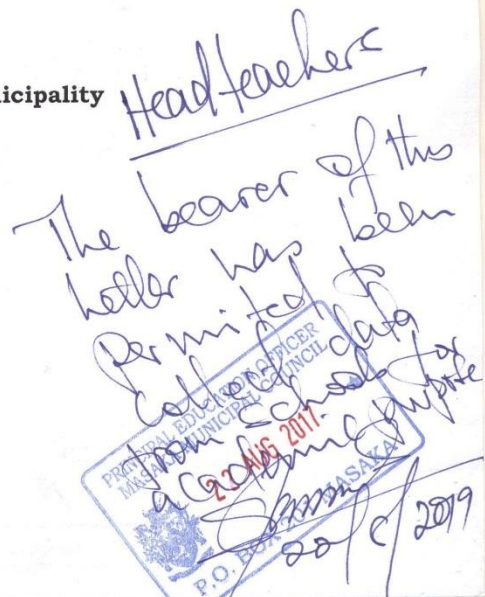 nicipality
Headteachers
The bearer of this
letter has been
permitted to
collect data
from schools for
academic purpose
PRINCIPAL EDUCATION OFFICER
MASAKA MUNICIPAL COUNCIL
AUG 2017
P.O. BOX MASAKA
2019